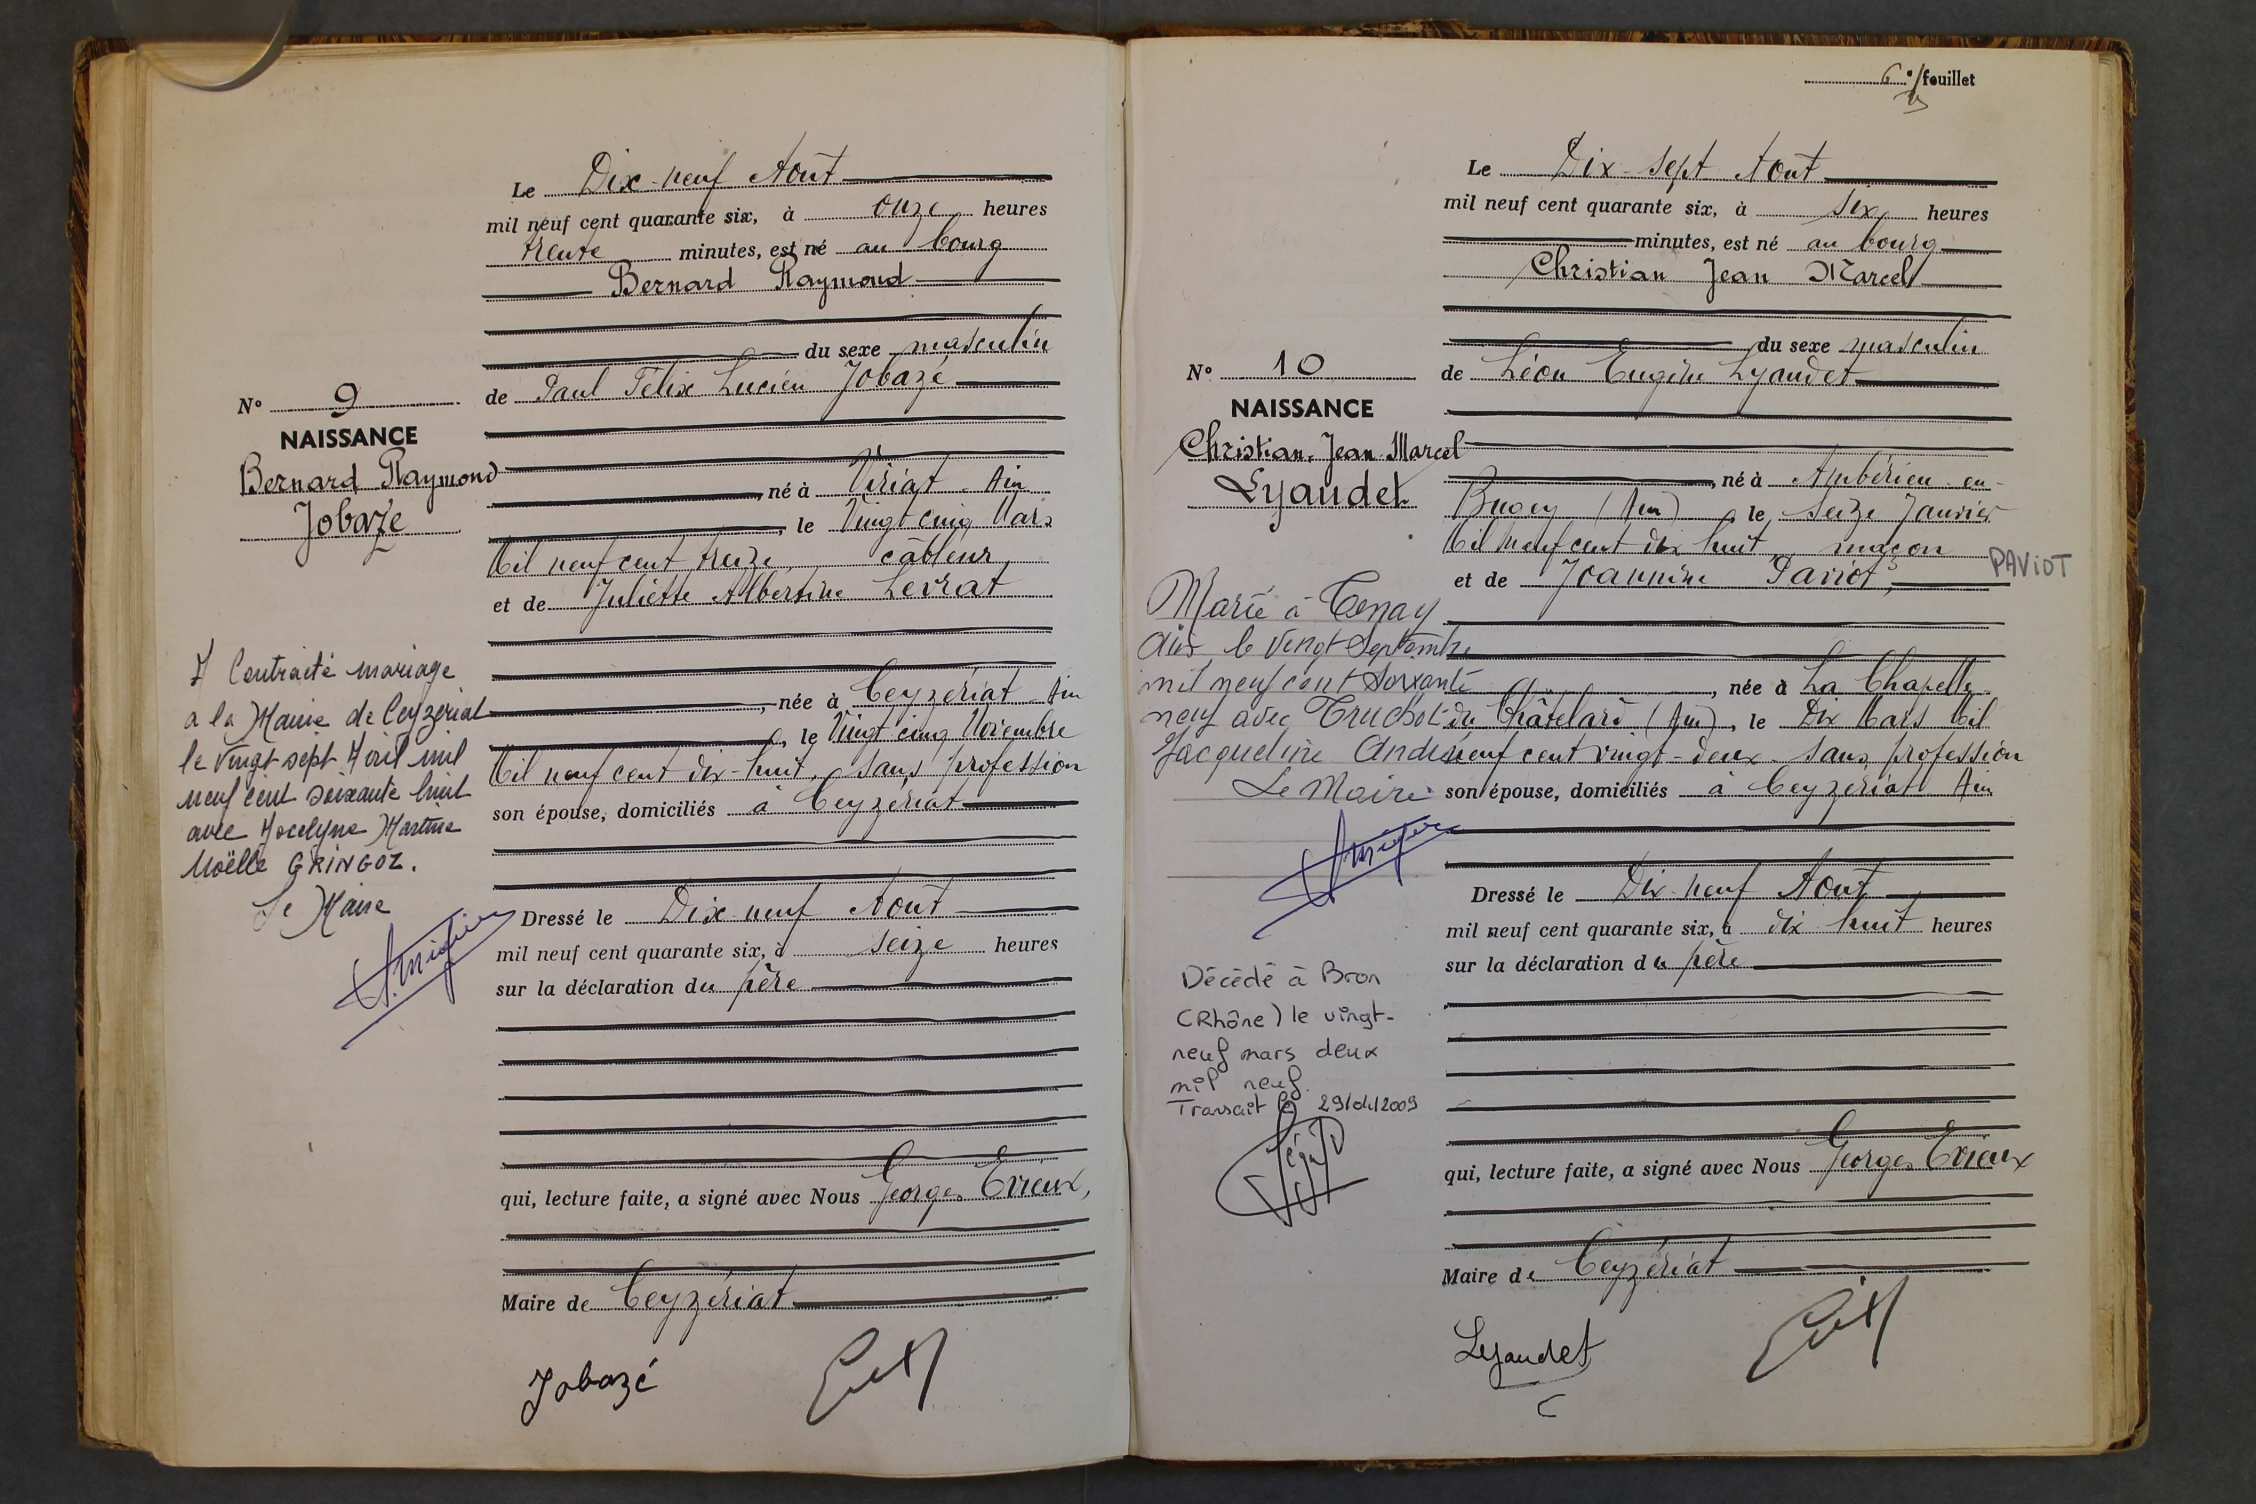 Le Dix-neuf Août
mil neuf cent quarante six, à onze heures
trente minutes, est né au bourg
Bernard Raymond
du sexe masculin
de Paul Félix Lucien Jobazé
N° 9
NAISSANCE
Bernard Raymond
Jobazé
, né à Viriat - Ain
, le Vingt cinq Mars
Mil neuf cent treize, câbleur
et de Juliette Albertine Levrat
, née à Ceyzériat - Ain
, le Vingt cinq Novembre
Mil neuf cent dix-huit, sans profession
son épouse, domiciliés à Ceyzériat
Contracté mariage
a la Mairie de Ceyzériat
le vingt sept Avril mil
neuf cent soixante huit
avec Jocelyne Martine
Noëlle GRINGOZ.
Le Maire
Dressé le Dix-neuf Août
mil neuf cent quarante six, à seize heures
sur la déclaration du père
qui, lecture faite, a signé avec Nous Georges Errieux,
Maire de Ceyzériat
Jobazé
6e feuillet
Le Dix-sept Août
mil neuf cent quarante six, à six heures
minutes, est né au bourg
Christian Jean Marcel
du sexe masculin
de Léon Eugène Lyaudet
N° 10
NAISSANCE
Christian Jean Marcel
Lyaudet
, né à Ambérieu-en-
Bugey (Ain), le seize Janvier
Mil neuf cent dix huit, maçon
et de Joannine Paviot,
PAVIOT
, née à La Chapelle
du Châtelard (Ain), le Dix Mars Mil
neuf cent vingt-deux, sans profession
son épouse, domiciliés à Ceyzériat Ain
Marié à Tenay
Ain le vingt Septembre
mil neuf cent soixante
neuf avec Truchot
Jacqueline Andrée
Le Maire
Décédé à Bron
(Rhône) le vingt-
neuf mars deux
mil neuf.
Transcrit le 29/04/2009
Dressé le Dix-neuf Août
mil neuf cent quarante six, à dix huit heures
sur la déclaration du père
qui, lecture faite, a signé avec Nous Georges Errieux
Maire de Ceyzériat
Lyaudet